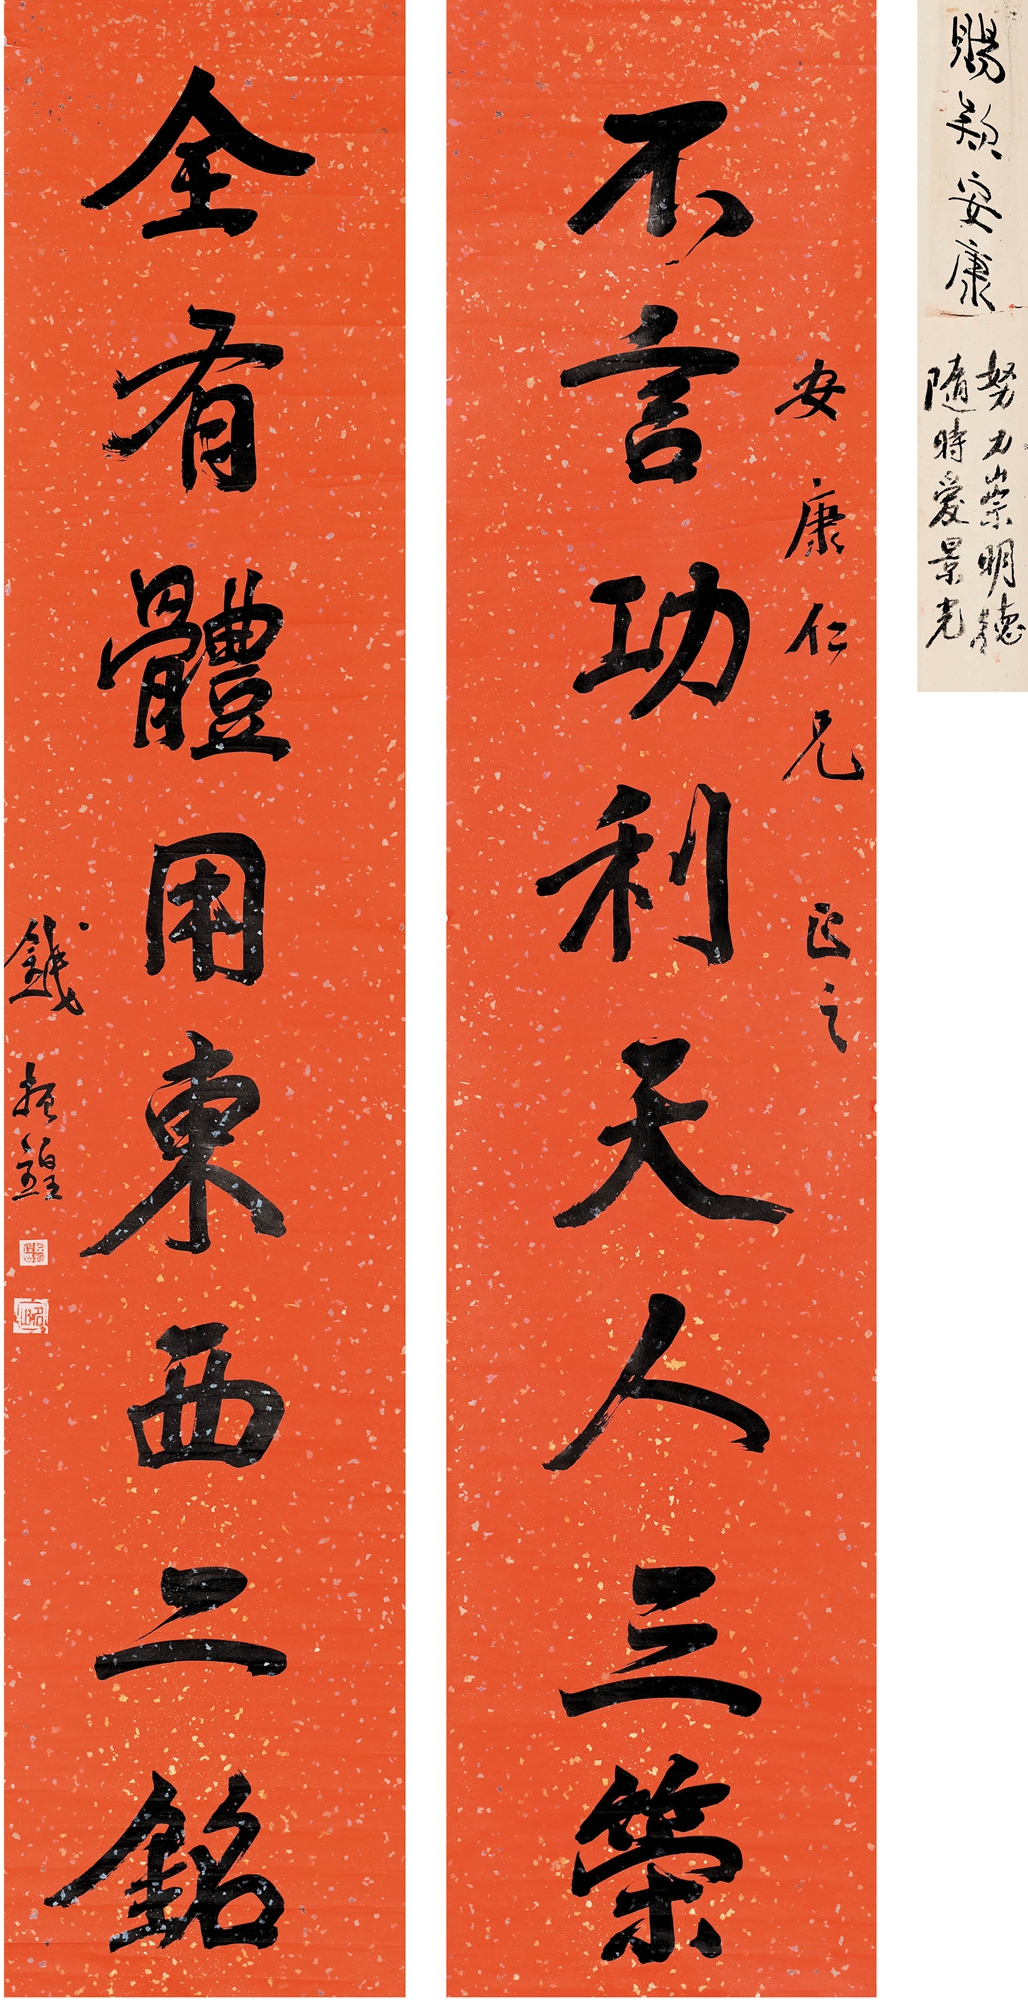 賜款安康
努力崇明德
隨時愛景光
安康仁兄正之
不言功利天人三策
全有體用東西二銘
錢振鍠